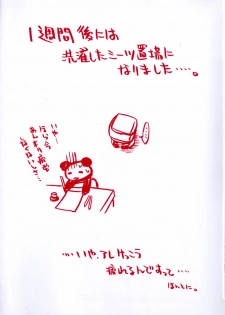 1週間後には
洗濯したミーツ置場に
なりました・・・・。
いや…
ほら今
あんまり疲労
してないしさ…
・・・・いや、アレけっこう
疲れるんですって・・・
ほんとに。